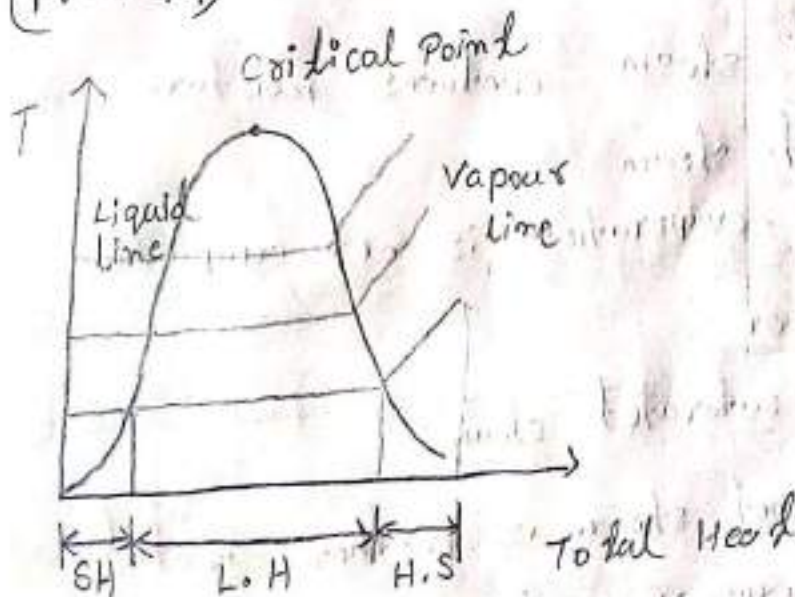 Critical Point
T
Liquid
line
Vapour
line
SH
L.H
H.S
Total Heat